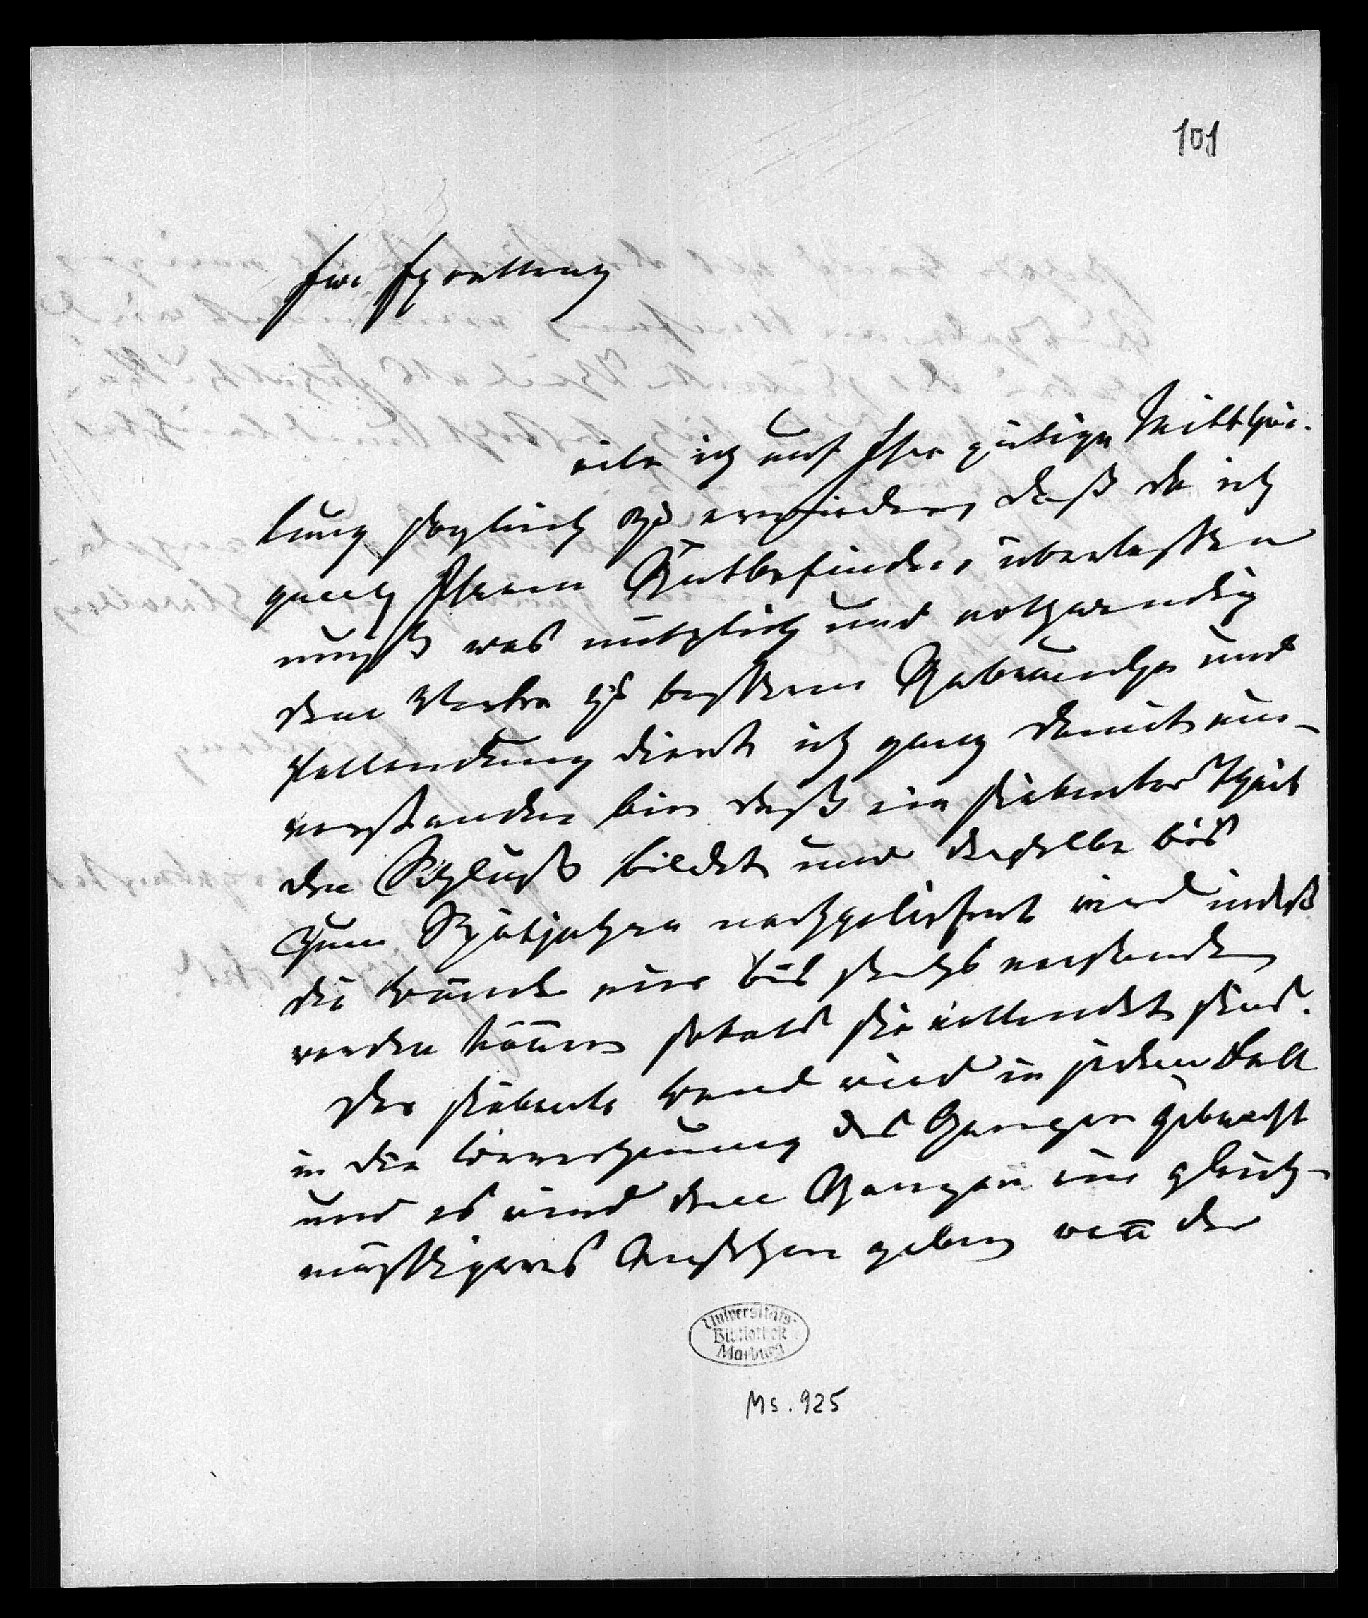 101
Ew Excellenz
eile ich auf Ihre gütige Mittthei-
lung sogleich zu erwiedern, daß da ich
ganz Ihrem Gutbefinden überlassen
muß was nützlich und nothwendig
dem Werke zu besserem Gebrauche und
Vollendung dient ich ganz damit ein-
verstanden bin daß ein siebenter Theil
den Schluß bildet und derselbe bis
zum Spätjahre nachgeliefert wird indeß
die Bände nur bis sechs versendet
werden können sobald sie vollendet sind.
Der siebente Band wird in jedem Fall
in die Berechnung des Ganzen gebracht
und es wird dem Ganzen ein gleich-
mäßigeres Ansehen geben wen̄ der
Universitäts-
Bibliothek
Marburg
Ms. 925